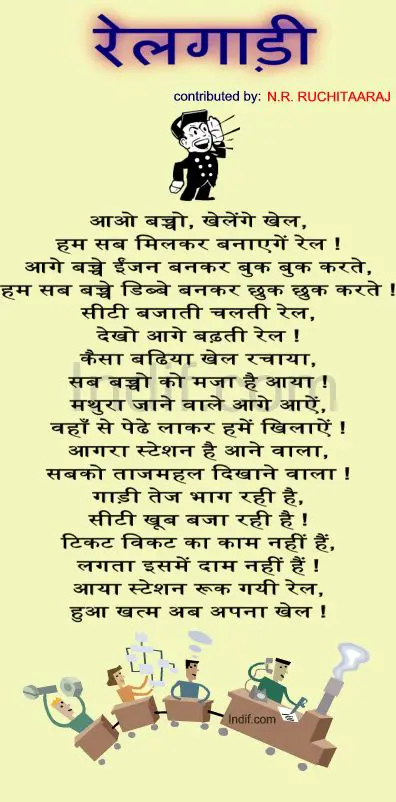 रेलगाड़ी
contributed by: N.R. RUCHITAARAJ
आओ बच्चो, खेलेंगे खेल,
हम सब मिलकर बनाएगें रेल !
आगे बच्चे ईंजन बनकर बुक बुक करते,
हम सब बच्चे डिब्बे बनकर छुक छुक करते !
सीटी बजाती चलती रेल,
देखो आगे बढ़ती रेल !
कैसा बढिया खेल रचाया,
सब बच्चो को मजा है आया !
मथुरा जाने वाले आगे आऐं,
वहाँ से पेढे लाकर हमें खिलाऐं !
आगरा स्टेशन है आने वाला,
सबको ताजमहल दिखाने वाला !
गाड़ी तेज भाग रही है,
सीटी खूब बजा रही है !
टिकट विकट का काम नहीं हैं,
लगता इसमें दाम नहीं हैं !
आया स्टेशन रूक गयी रेल,
हुआ खत्म अब अपना खेल !
Indif.com
Indif.com